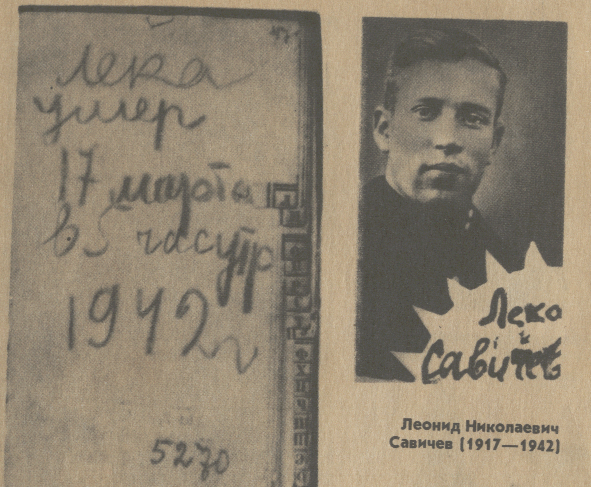 лека
умер
17 марта
в 5 часутр
1942 г
5270
Лека
Савичев
Леонид Николаевич
Савичев (1917—1942)